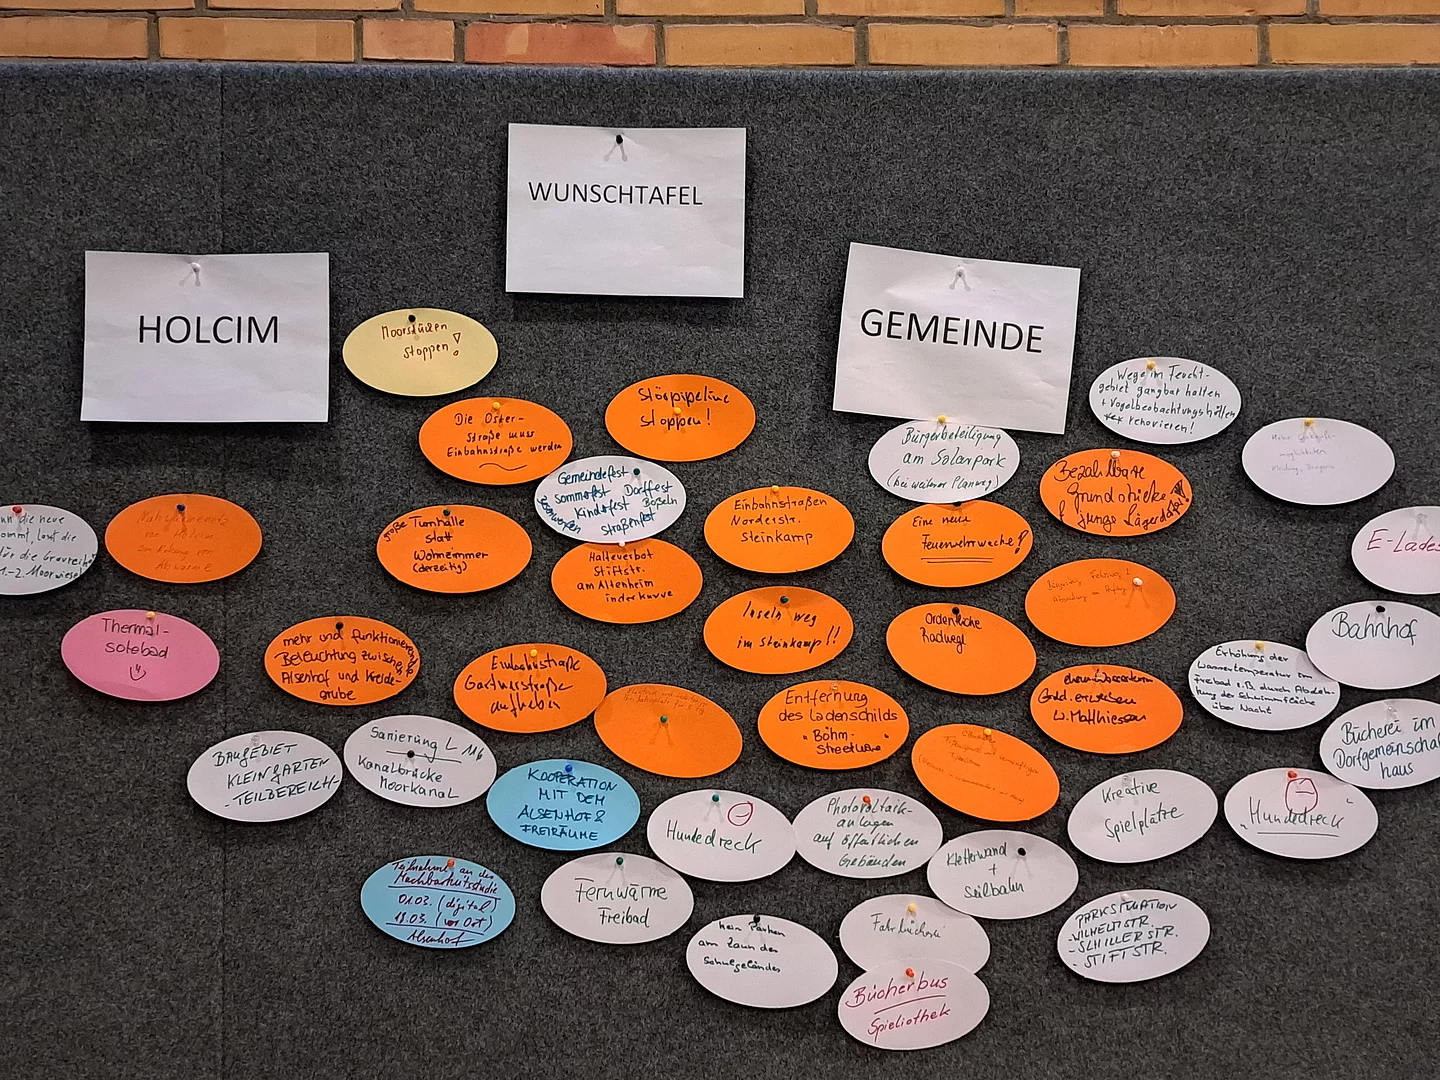 WUNSCHTAFEL
HOLCIM
GEMEINDE
Moorsünden
stoppen!
Störpipeline
stoppen!
Die Oster-
straße muss
Einbahnstraße werden
Wege im Feucht-
gebiet gangbar halten
+ Vogelbeobachtungshütten
renovieren!
Bürgerbeteiligung
am Solarpark
(bei weiterer Planung)
Gemeindefest
Sommerfest Dorffest
Kinderfest Boßeln
Straßenfest
Bezahlbare
Grundstücke
junge Lägerdorfer
die neue
kommt, lauf die
für die
1.-2. Moorwiese
von Holcim
zur Nutzung von
Abwärme
große Turnhalle
statt
Wohnzimmer
(derzeitig)
Einbahnstraßen
Norderstr.
Steinkamp
Eine neue
Feuerwehrwache!
E-Lades
Halteverbot
Stiftstr.
am Altenheim
in der Kurve
Thermal-
solebad
mehr und funktionierende
Beleuchtung zwischen
Alsenhof und Kreide-
grube
Inseln weg
im Steinkamp!!
Ordentliche
Radwege
Bahnhof
Erhöhung der
Wassertemperatur im
Freibad z.B. durch Abdeck-
ung der Schwimmfläche
über Nacht
Einbahnstraße
Gärtnerstraße
aufheben
Entfernung
des Ladenschilds
"Böhm-
Streetware"
W. Matthiessen
Bücherei im
Dorfgemeinschafts
haus
BAUGEBIET
KLEINGÄRTEN
-TEILBEREICH-
Sanierung L 116
Kanalbrücke
Moorkanal
KOOPERATION
MIT DEM
ALSENHOF &
FREIRÄUME
Hundedreck
Photovoltaik-
anlagen
auf öffentlichen
Gebäuden
Kreative
Spielplätze
"Hundedreck"
Kletterwand
+
Seilbahn
Teilnahme an der
Machbarkeitsstudie
01.03. (digital)
11.03. (vor Ort)
Alsenhof
Fernwärme
Freibad
kein Parken
am Zaun des
Schulgeländes
Fahrbücherei
Bücherbus
Spieliothek
PARKSITUATION
-WILHELMSTR.
-SCHILLERSTR.
-STIFTSTR.